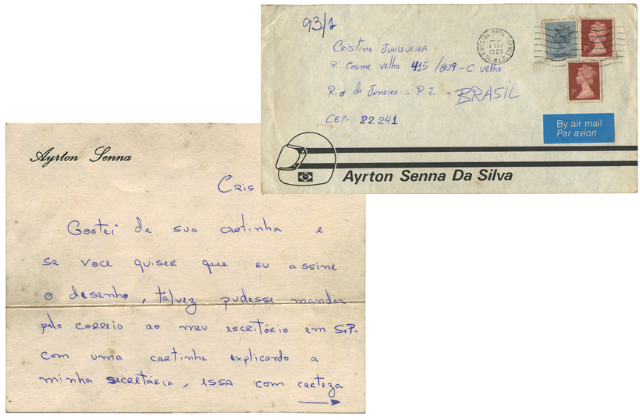 93/1
Cristina Junqueira
R. Cosme Velho 415/809 - C. Velho
Rio de Janeiro - R.J. - BRASIL
CEP. 22.241
By air mail
Par avion
Ayrton Senna Da Silva
Ayrton Senna
Cris
Gostei de sua cartinha e
se voce quiser que eu assine
o desenho, talvez pudesse mandar
pelo correio ao meu escritório em S.P.
com uma cartinha explicando a
minha secretária, essa com certeza